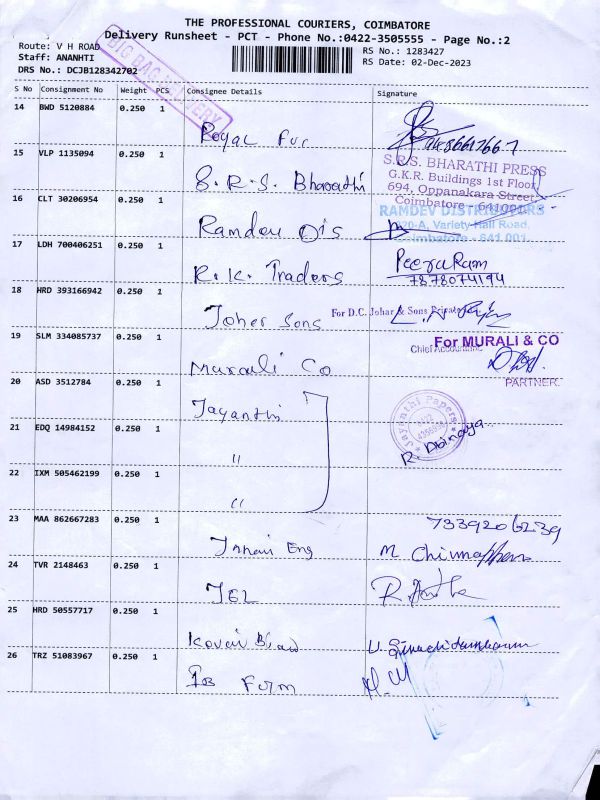 THE PROFESSIONAL COURIERS, COIMBATORE
Delivery Runsheet - PCT - Phone No.:0422-3505555 - Page No.:2
Route: V H ROAD
RS No.: 1283427
Staff: ANANHTI
RS Date: 02-Dec-2023
DRS No.: DCJB128342702
BIG BAG DELIVERY
S No Consignment No Weight PCS Consignee Details Signature
14 BWD 5120884 0.250 1
Royal Fur
15 VLP 1135094 0.250 1
S.R.S. BHARATHI PRESS
G.K.R. Buildings 1st Floor
694, Oppanakara Street,
Coimbatore - 641001
S. R. S. Bharathi
16 CLT 30206954 0.250 1
RAMDEV DISTRIBUTORS
320-A, Variety Hall Road,
Coimbatore - 641 001
Ramdev Dis
17 LDH 700406251 0.250 1
PeeraRam
7878074194
R. K. Traders
18 HRD 393166942 0.250 1
For D.C. Johar & Sons Private
Joher Sons
19 SLM 334085737 0.250 1
For MURALI & CO
Chief Accountant
PARTNER.
Murali Co
20 ASD 3512784 0.250 1
Jayanthi
Jayanthi Papers
21 EDQ 14984152 0.250 1
R. Abinaya
"
22 IXM 505462199 0.250 1
"
23 MAA 862667283 0.250 1
7339206239
Eng
M
24 TVR 2148463 0.250 1
25 HRD 50557717 0.250 1
Kovai
26 TRZ 51083967 0.250 1
Form